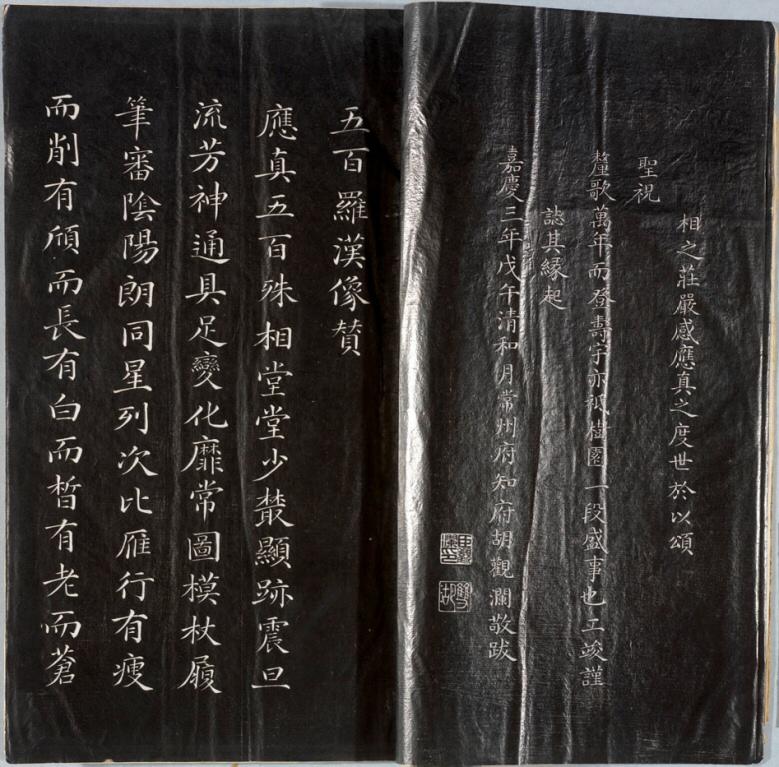 相之莊嚴感應真之度世於以頌
聖祝
釐歌萬年而登壽宇亦祗樹園一段盛事也工竣謹
誌其緣起
嘉慶三年戊午清和月常州府知府胡觀瀾敬跋
五百羅漢像贊
應真五百殊相堂堂少叢顯跡震旦
流芳神通具足變化靡常圖模杖履
筆審陰陽朗同星列次比雁行有瘦
而削有頎而長有白而皙有老而蒼